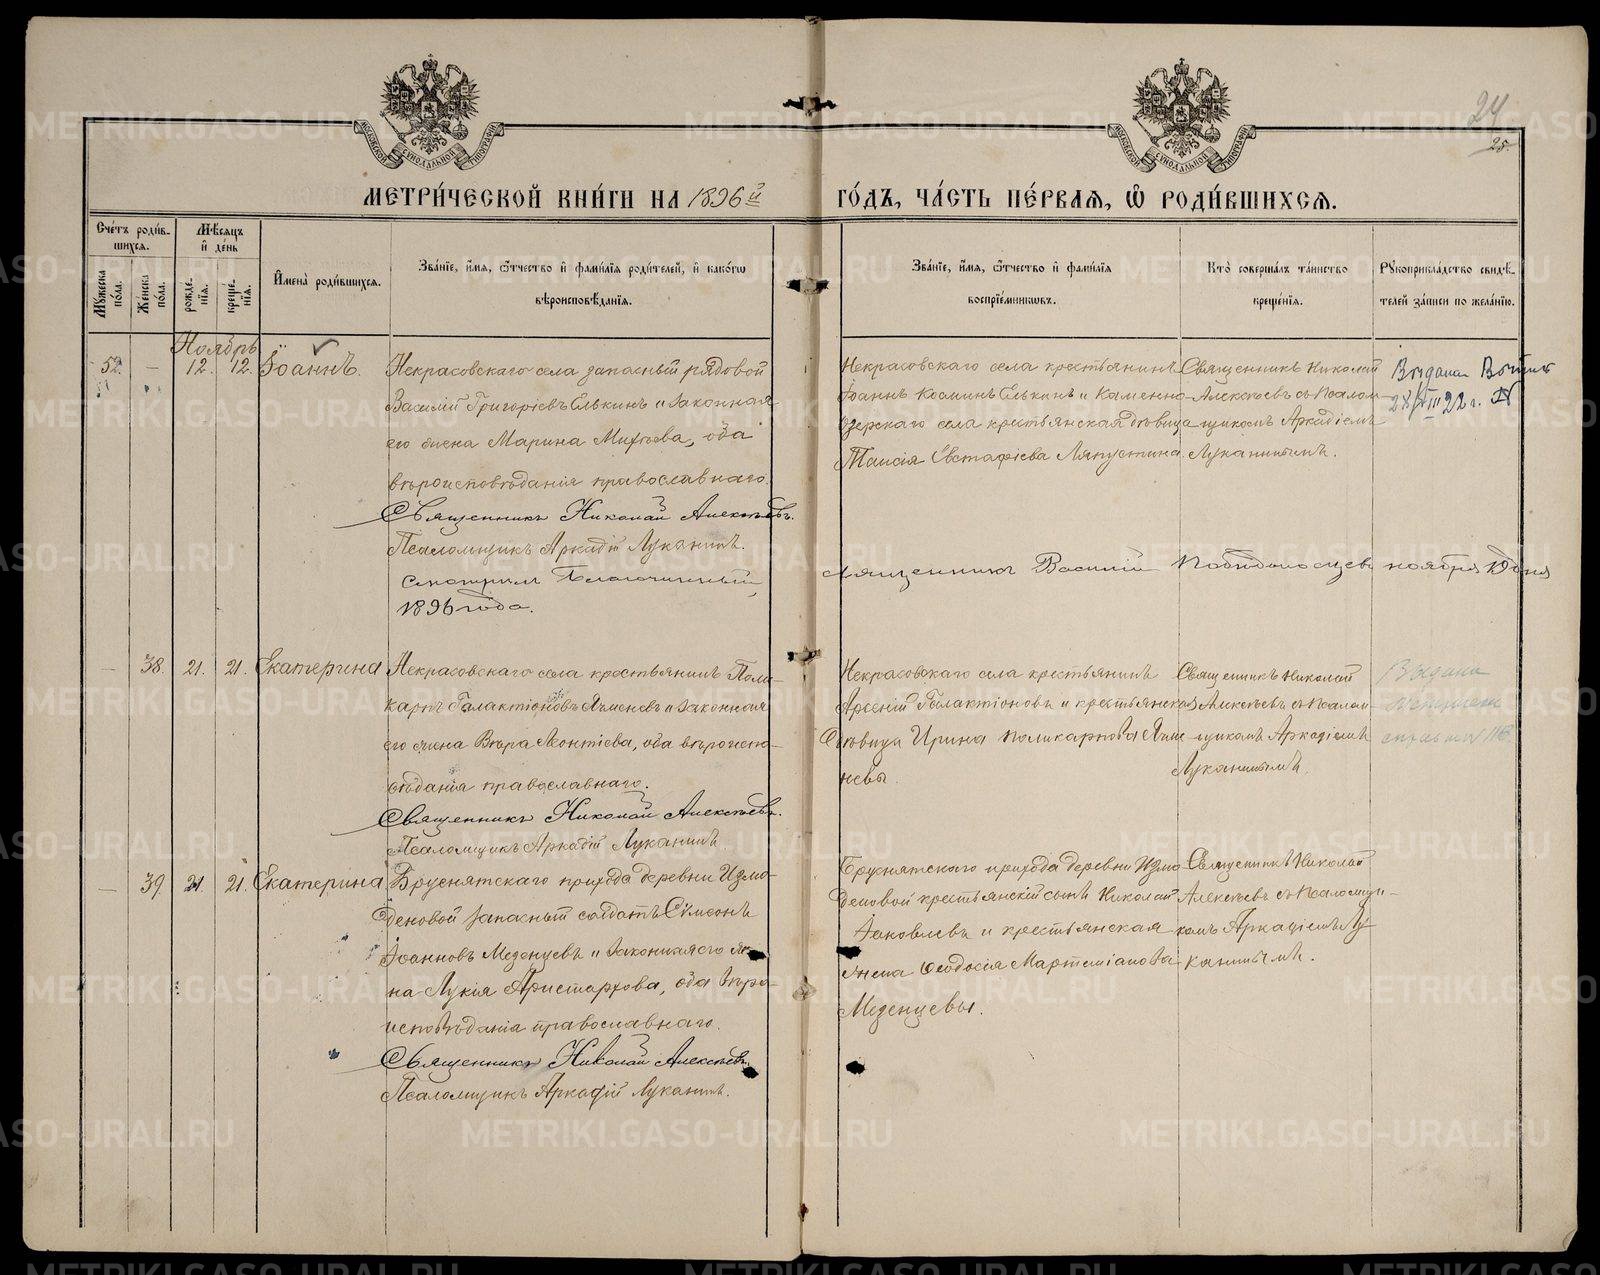 24
25.
МЕТРИ́ЧЕСКОЙ КНИ́ГИ НА 1896й ГО́ДЪ, ЧА́СТЬ ПЕ́РВАЯ, Ѡ РОДИ́ВШИХСЯ.
Сче́тъ роди́в-
шихся.
Мѣ́сяцъ
и де́нь
Мꙋ́жеска по́ла.
Же́нска по́ла.
рожде́нїя.
креще́нїя.
Имена̀ роди́вшихся.
Зва́нїе, и́мя, ѻ́тчество и фами́лїя роди́телей, и како́гѡ
вѣроисповѣ́данїя.
Зва́нїе, и́мя, ѻ́тчество и фами́лїя
воспрїе́мниковъ.
Кто̀ соверша́лъ та́инство
креще́нїя.
Рꙋкоприкла́дство свидѣ́-
телей за́писи по жела́нїю.
Ноябрь
52. — 12. 12. Іоаннъ.
Некрасовскаго села запасный рядовой
Василій Григоріевъ Елькинъ и законная
его жена Марина Михѣева, оба
вѣроисповѣданія православнаго.
Священникъ Николай Алексѣевъ.
Псаломщикъ Аркадій Луканинъ.
Смотрѣлъ Благочинный,
Священникъ Василій Побѣдоносцевъ ноября дня
1896 года.
Некрасовскаго села крестьянинъ
Іоаннъ Косминъ Елькинъ и Каменно-
озерскаго села крестьянская дѣвица
Таисія Евстафіева Ляпустина.
Священникъ Николай
Алексѣевъ съ псалом-
щикомъ Аркадіемъ
Луканинымъ.
Выдана
22 г.
— 38. 21. 21. Екатерина
Некрасовскаго села крестьянинъ Поли-
карпъ Галактіоновъ Ячменевъ и законная
его жена Вѣра Леонтіева, оба вѣроиспо-
вѣданія православнаго.
Священникъ Николай Алексѣевъ.
Псаломщикъ Аркадій Луканинъ.
Некрасовскаго села крестьянинъ
Арсеній Галактіоновъ и крестьянская
дѣвица Ирина Поликарпова Ячме-
невы.
Священникъ Николай
Алексѣевъ съ псалом-
щикомъ Аркадіемъ
Луканинымъ.
Выдана
— 39. 21. 21. Екатерина
Бруснятскаго прихода деревни Измо-
деновой запасный солдатъ Сѵмеонъ
Іоанновъ Меденцевъ и законная его же-
на Лукія Аристархова, оба вѣро-
исповѣданія православнаго.
Священникъ Николай Алексѣевъ.
Псаломщикъ Аркадій Луканинъ.
Бруснятскаго прихода деревни Измо-
деновой крестьянскій сынъ Николай
Іаковлевъ и крестьянская
жена Ѳеодосія Мартиміанова
Меденцевы.
Священникъ Николай
Алексѣевъ съ псаломщи-
комъ Аркадіемъ Лу-
канинымъ.
METRIKI.GASO-URAL.RU